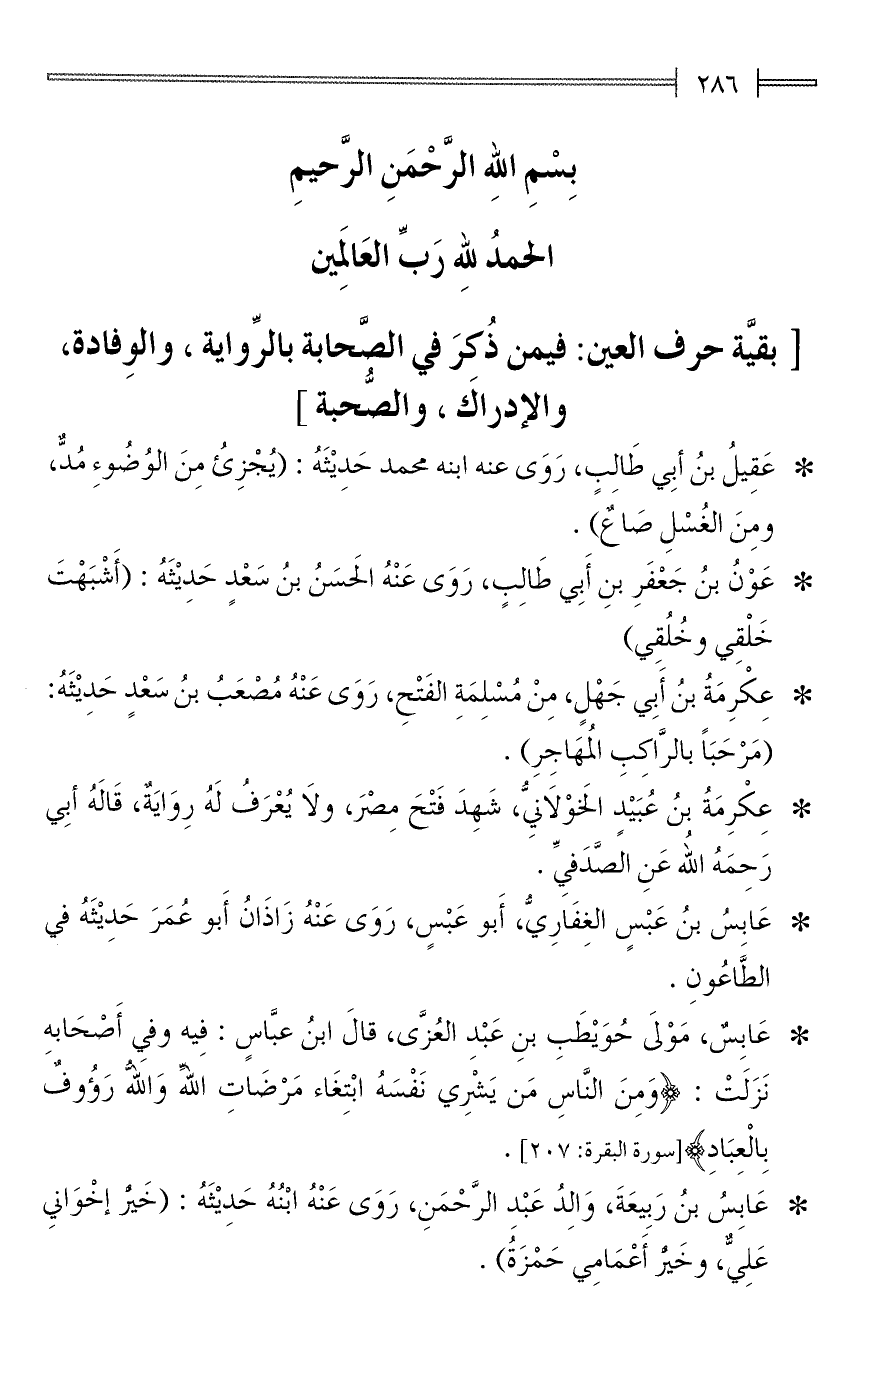 ٢٨٦
بِسْمِ اللهِ الرَّحْمَنِ الرَّحيمِ
الحمدُ للهِ رَبِّ العَالَمِين
[ بقيَّة حرف العين: فيمن ذُكِرَ في الصَّحابة بالرِّواية ، والوِفادة،
والإدراك ، والصُّحبة ]
* عَقِيلُ بنُ أبي طَالِبٍ، رَوَى عنه ابنه محمد حَدِيْثَهُ : (يُجْزِئُ مِنَ الوُضُوءِ مُدٌّ،
ومِنَ الغُسْلِ صَاعٌ) .
* عَوْنُ بنُ جَعْفَرِ بنِ أَبي طَالِبٍ، رَوَى عَنْهُ الحَسَنُ بنُ سَعْدٍ حَدِيْثَهُ : (أَشْبَهْتَ
خَلْقِي وخُلُقِي)
* عِكْرِمَةُ بنُ أَبي جَهْلٍ، مِنْ مُسْلِمَةِ الفَتْحِ، رَوَى عَنْهُ مُصْعَبُ بنُ سَعْدٍ حَدِيْثَهُ:
(مَرْحَبَاً بالرَّاكِبِ المُهَاجِرِ) .
* عِكْرِمَةُ بنُ عُبَيْدٍ الخَوْلَانيُّ، شَهِدَ فَتْحَ مِصْرَ، ولَا يُعْرَفُ لَهُ رِوَايَةٌ، قَالَهُ أبي
رَحِمَهُ اللهُ عَنِ الصَّدَفيِّ .
* عَابِسُ بنُ عَبْسٍ الغِفَارِيُّ، أَبو عَبْسٍ، رَوَى عَنْهُ زَاذَانُ أبو عُمَرَ حَدِيْثَهُ في
الطَّاعُونِ .
* عَابِسٌ، مَوْلَى حُوَيْطِبِ بنِ عَبْدِ العُزَّى، قالَ ابنُ عبَّاسٍ : فِيه وفي أَصْحَابهِ
نَزَلَتْ : ﴿وَمِنَ النَّاسِ مَن يَشْرِي نَفْسَهُ ابْتِغَاء مَرْضَاتِ اللهِّ وَاللهُّ رَؤُوفٌ
بِالْعِبَادِ﴾[سورة البقرة: ٢٠٧] .
* عَابِسُ بنُ رَبِيعَةَ، وَالِدُ عَبْدِ الرَّحْمَنِ، رَوَى عَنْهُ ابْنُهُ حَدِيْثَهُ : (خَيْرُ إخْوَاني
عَلِيٌّ، وخَيْرُ أَعْمَامِي حَمْزَةُ) .